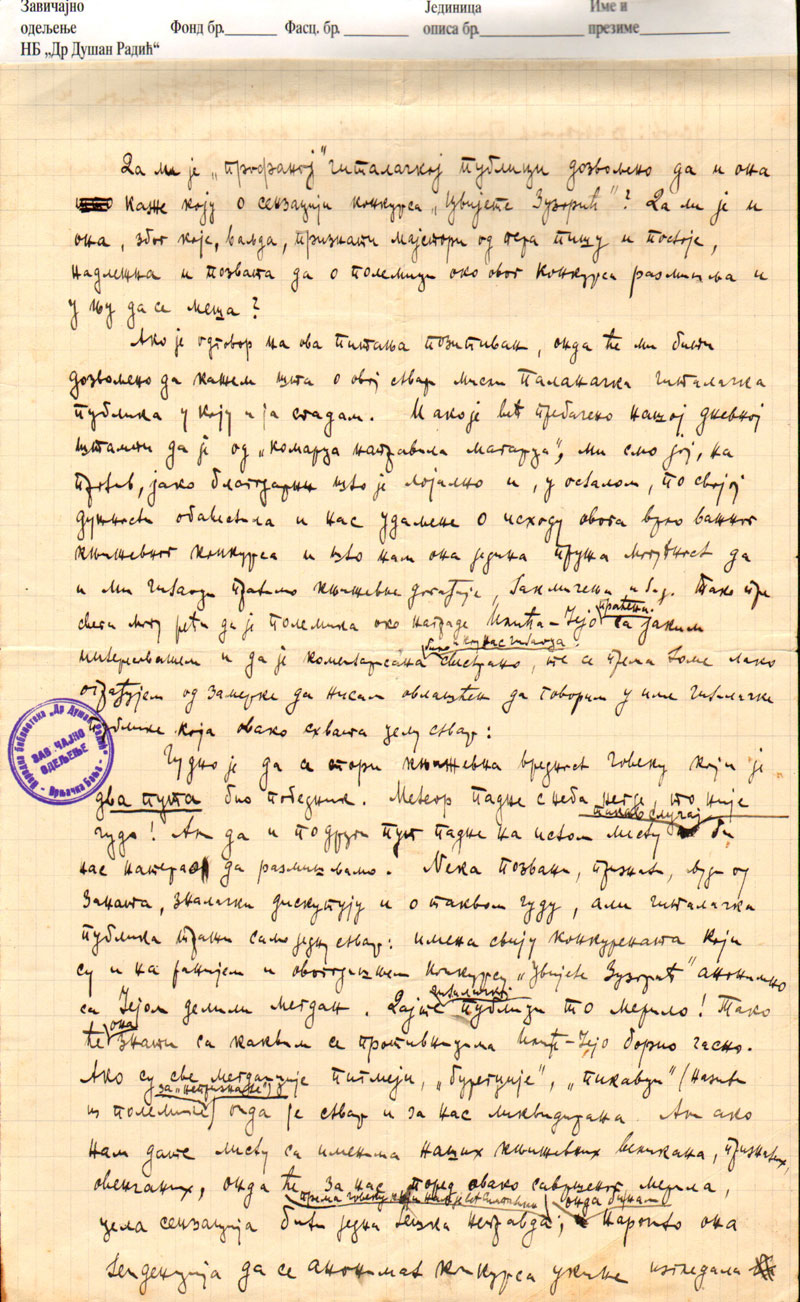 Завичајно
одељење
НБ „Др Душан Радић“
Фонд бр.
Фасц. бр.
Јединица
описа бр.
Име и
презиме
Да ли је „профаној“ читалачкој публици дозвољено да и она
каже коју о сензацији конкурса „Цвијете Зузорић“? Да ли је и
она, због које, ваљда, признати мајстори од пера пишу и постоје,
надлежна и позвата да о полемици око овог конкурса размишља и
у њу да се меша?
Ако је одговор на ова питања позитиван, онда ће ми бити
дозвољено да кажем шта о овој ствари мисли паланачка читалачка
публика у коју и ја спадам. И ако је већ пребачено нашој дневној
штампи да је од „комарца направила магарца“, ми смо јој, на
против, јако благодарни што је лојално и, у осталом, по својој
дужности обавестила и нас удаљене о исходу овога врло важног
књижевног конкурса и што нам она једина пружа могућност да
и ми читаоци пратимо књижевне догађаје, и т.д. Тако пре
свега могу рећи да је полемика око награде Илића-Чејо праћена са јаким
интересовањем и да је коментарисана свестрано, те се према томе лако
ограђујем од замерке да нисам овлашћен да говорим у име читалачке
публике која овако схвата целу ствар:
Чудно је да се спори књижевна вредност човеку који је
два пута био победник. Метеор падне с неба негде, то није
чудо! Ал да и по други пут падне на истом месту такав случај би
нас натерао да размишљамо. Нека позвани, признати, људи од
заната, зналачки дискутују и о таквом чуду, али читалачка
публика тражи само једну ствар: имена свију конкурената који
су и на ранијем и овогодишњем конкурсу „Цвијете Зузорић“ анонимно
са Чејом делили мегдан. Дајте читалачкој публици то мерило! Тако
ће она знати са каквим се противницима Илић-Чејо борио часно.
Ако су све мегданџије пигмеји, „бурегџије“, „пикавци“ (називи
за „непризнате“ из полемике) онда је ствар и за нас ликвидирана. Ал ако
нам дате листу са именима наших књижевних великана, признатих,
овенчаних, онда ће за нас, поред овако савршеног мерила,
цела сензација бити једна тешка неправда, нарочито она
тенденција да се анонимат конкурса укине изгледала
Народна библиотека „Др Душан Радић“
ЗАВИЧАЈНО
ОДЕЉЕЊЕ
Врњачка Бања